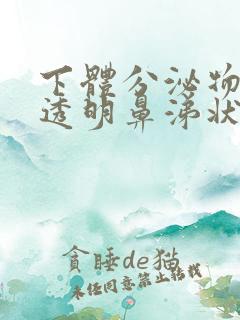 下體分泌物
透明鼻涕狀
貪睡de猫
未任同意禁止转载